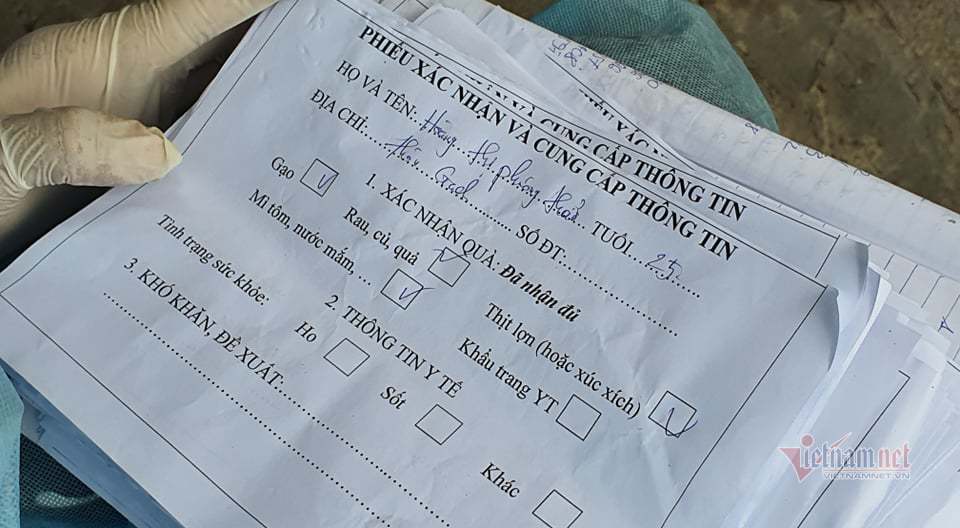 PHIẾU XÁC NHẬN VÀ CUNG CẤP THÔNG TIN
HỌ VÀ TÊN: Hoàng Thị Phương Thảo TUỔI 25
ĐỊA CHỈ: Thôn SỐ ĐT:
1. XÁC NHẬN QUÀ: Đã nhận đủ
Gạo Rau, củ, quả Thịt lợn (hoặc xúc xích)
Mì tôm, nước mắm, ... Khẩu trang YT
2. THÔNG TIN Y TẾ
Tình trạng sức khỏe: Ho Sốt Khác
3. KHÓ KHĂN, ĐỀ XUẤT:
vietnamnet
VIETNAMNET.VN